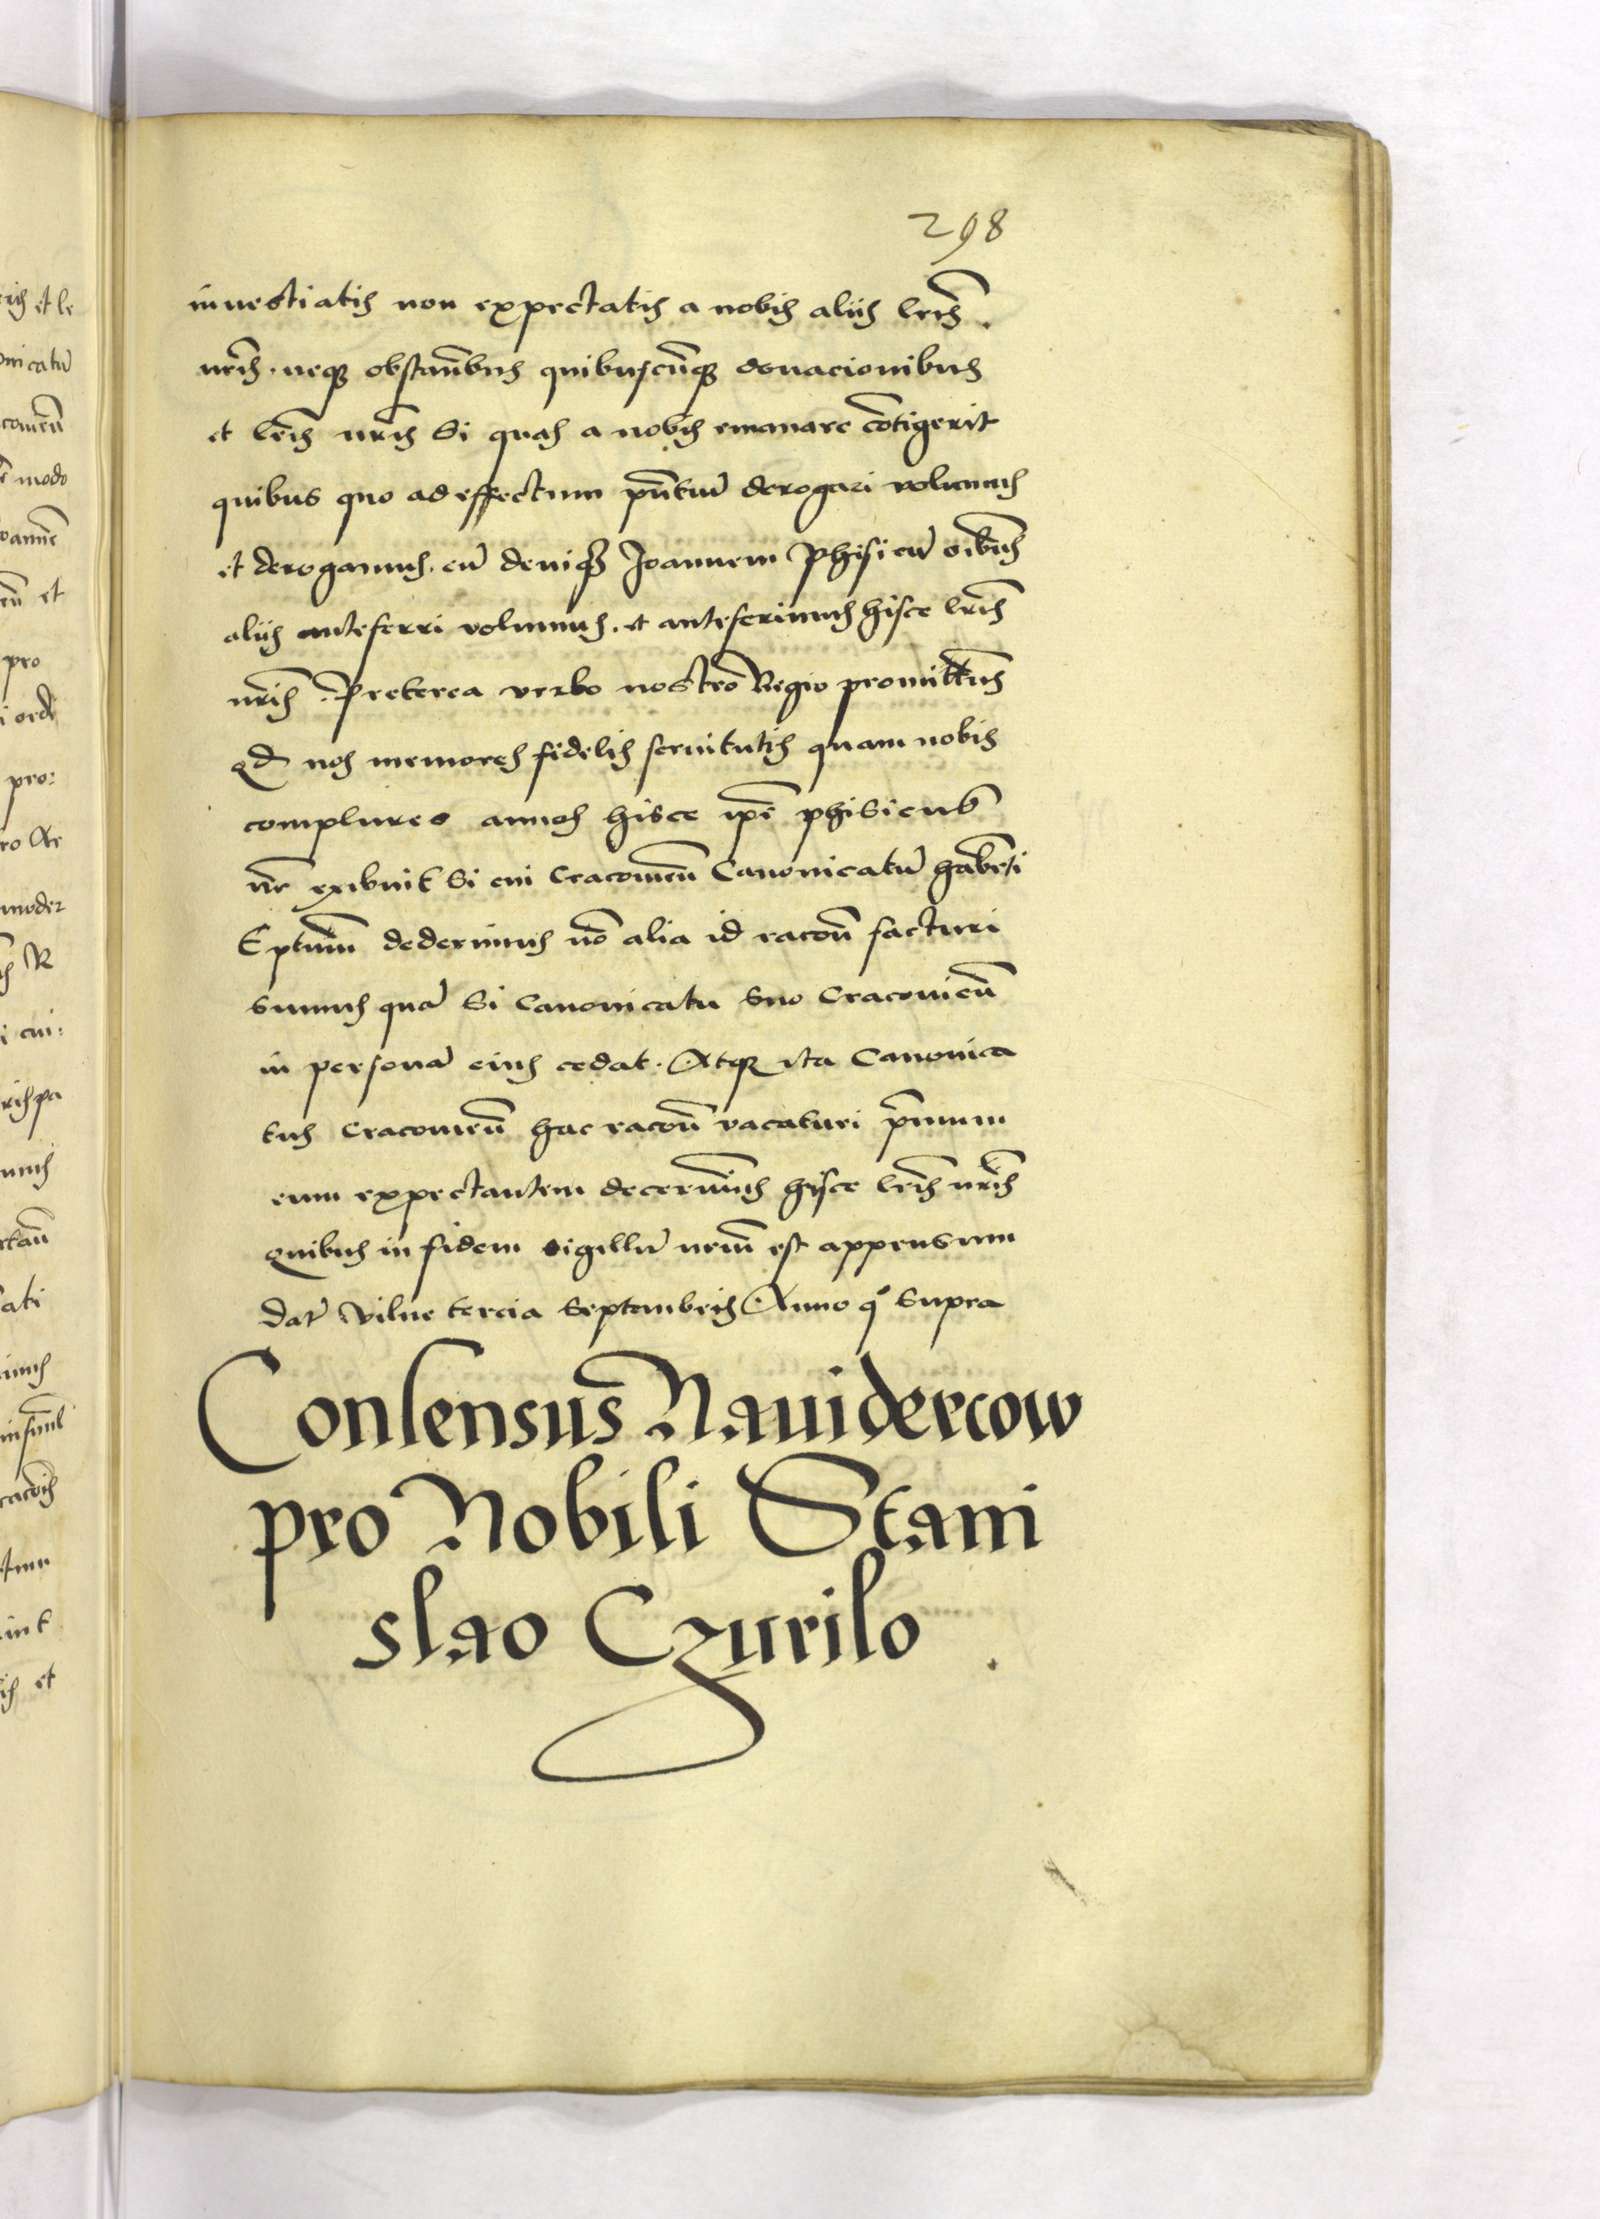 298
inuestiatis non expectatis a nobis aliis lr̃is
nr̃is. neq; obstan̄bus quibuscūq; donacionibus
et lr̃is nr̃is Si quas a nobis emanare cōtigerit
quibus quo ad effectum pn̄tiū derogari volumus
et derogamus. eū deniq; Joannem Phisicū oībus
aliis anteferri volumus. et anteferimus hisce lr̃is
nr̃is. Preterea verbo nostro Regio promittim̃us
qd nos memores fidelis seruitutis quam nobis
complures annos hisce ip̄e phisicus
nr̄ exibuit Si cui Cracouien̄ Canonicatū habēti
Ep̄tum dederimus nō alia id racōn̄ facturi
sumus quā Si Canonicatu suo Cracouien̄
in personā eius cedat. Atq; ita Canonica
tus Cracouien̄ hac racōn̄ vacaturi p̄mum
eum expectantem decernim̃us hisce lr̃is nr̃is
quibus in fidem sigillū nrm̄ est appensum
dat̄ Vilne tercia Septembris Anno qº supra
Consensus Nauidercow
pro Nobili Stani
slao Czurilo